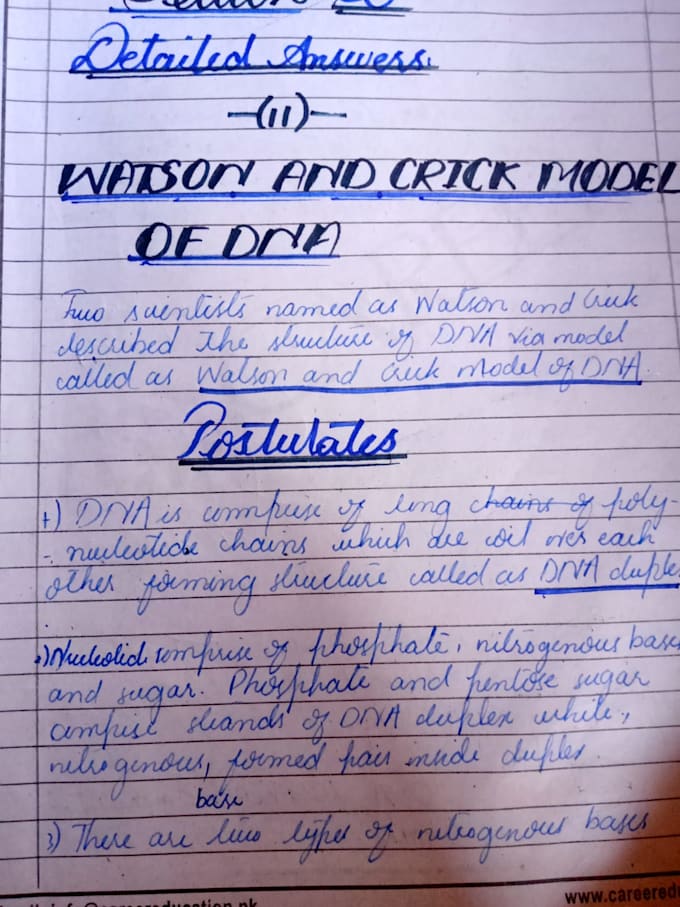 Detailed Answers.
-(11)-
WATSON AND CRICK MODEL
OF DNA
Two scientists named as Watson and Crick
described the structure of DNA via model
called as Watson and Crick model of DNA.
Postulates
1) DNA is comprise of long chains of poly-
- nucleotide chains which are coil over each
other forming structure called as DNA duplex
2) Nucleotide comprise of phosphate, nitrogenous bases
and sugar. Phosphate and pentose sugar
comprise strands of DNA duplex while,
nitrogenous, formed pair inside duplex.
base
3) There are two types of nitrogenous bases
www.careered